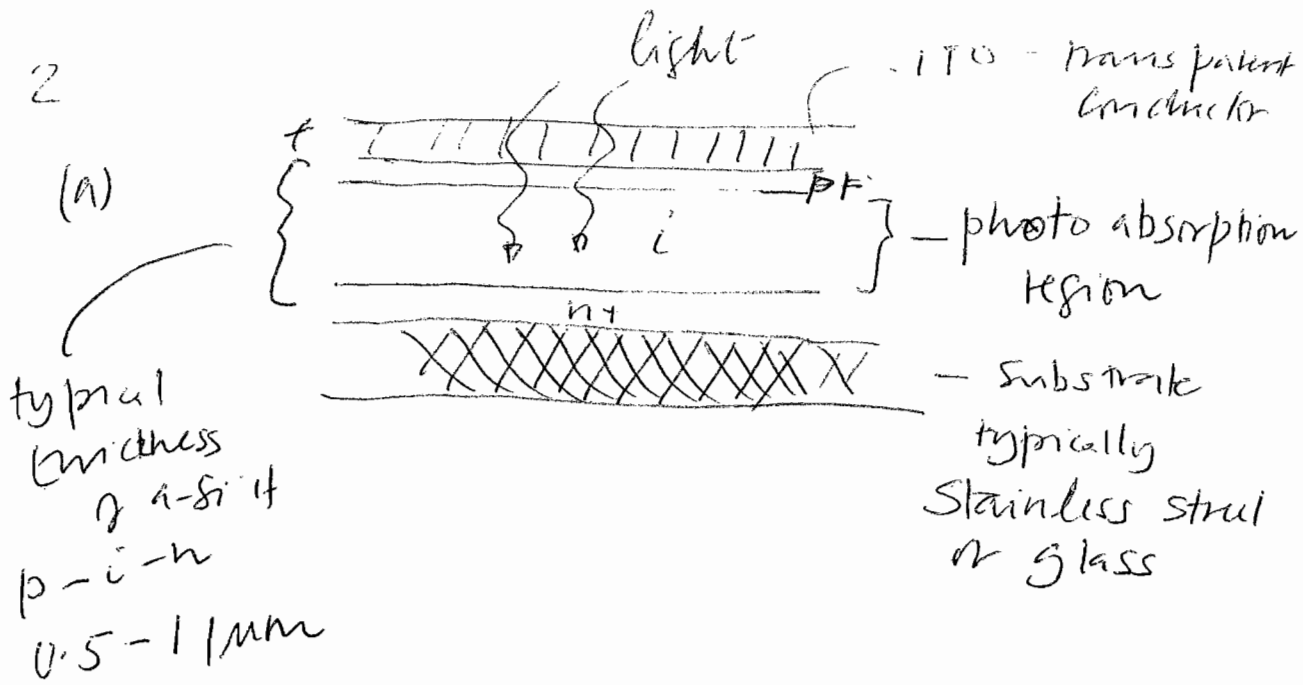 2
(a)
light
ITO - transparent
conductor
+
p+
i
- photo absorption
region
n+
- Substrate
typically
Stainless steel
or glass
typical
thickness
of a-Si:H
p-i-n
0.5-1 μm